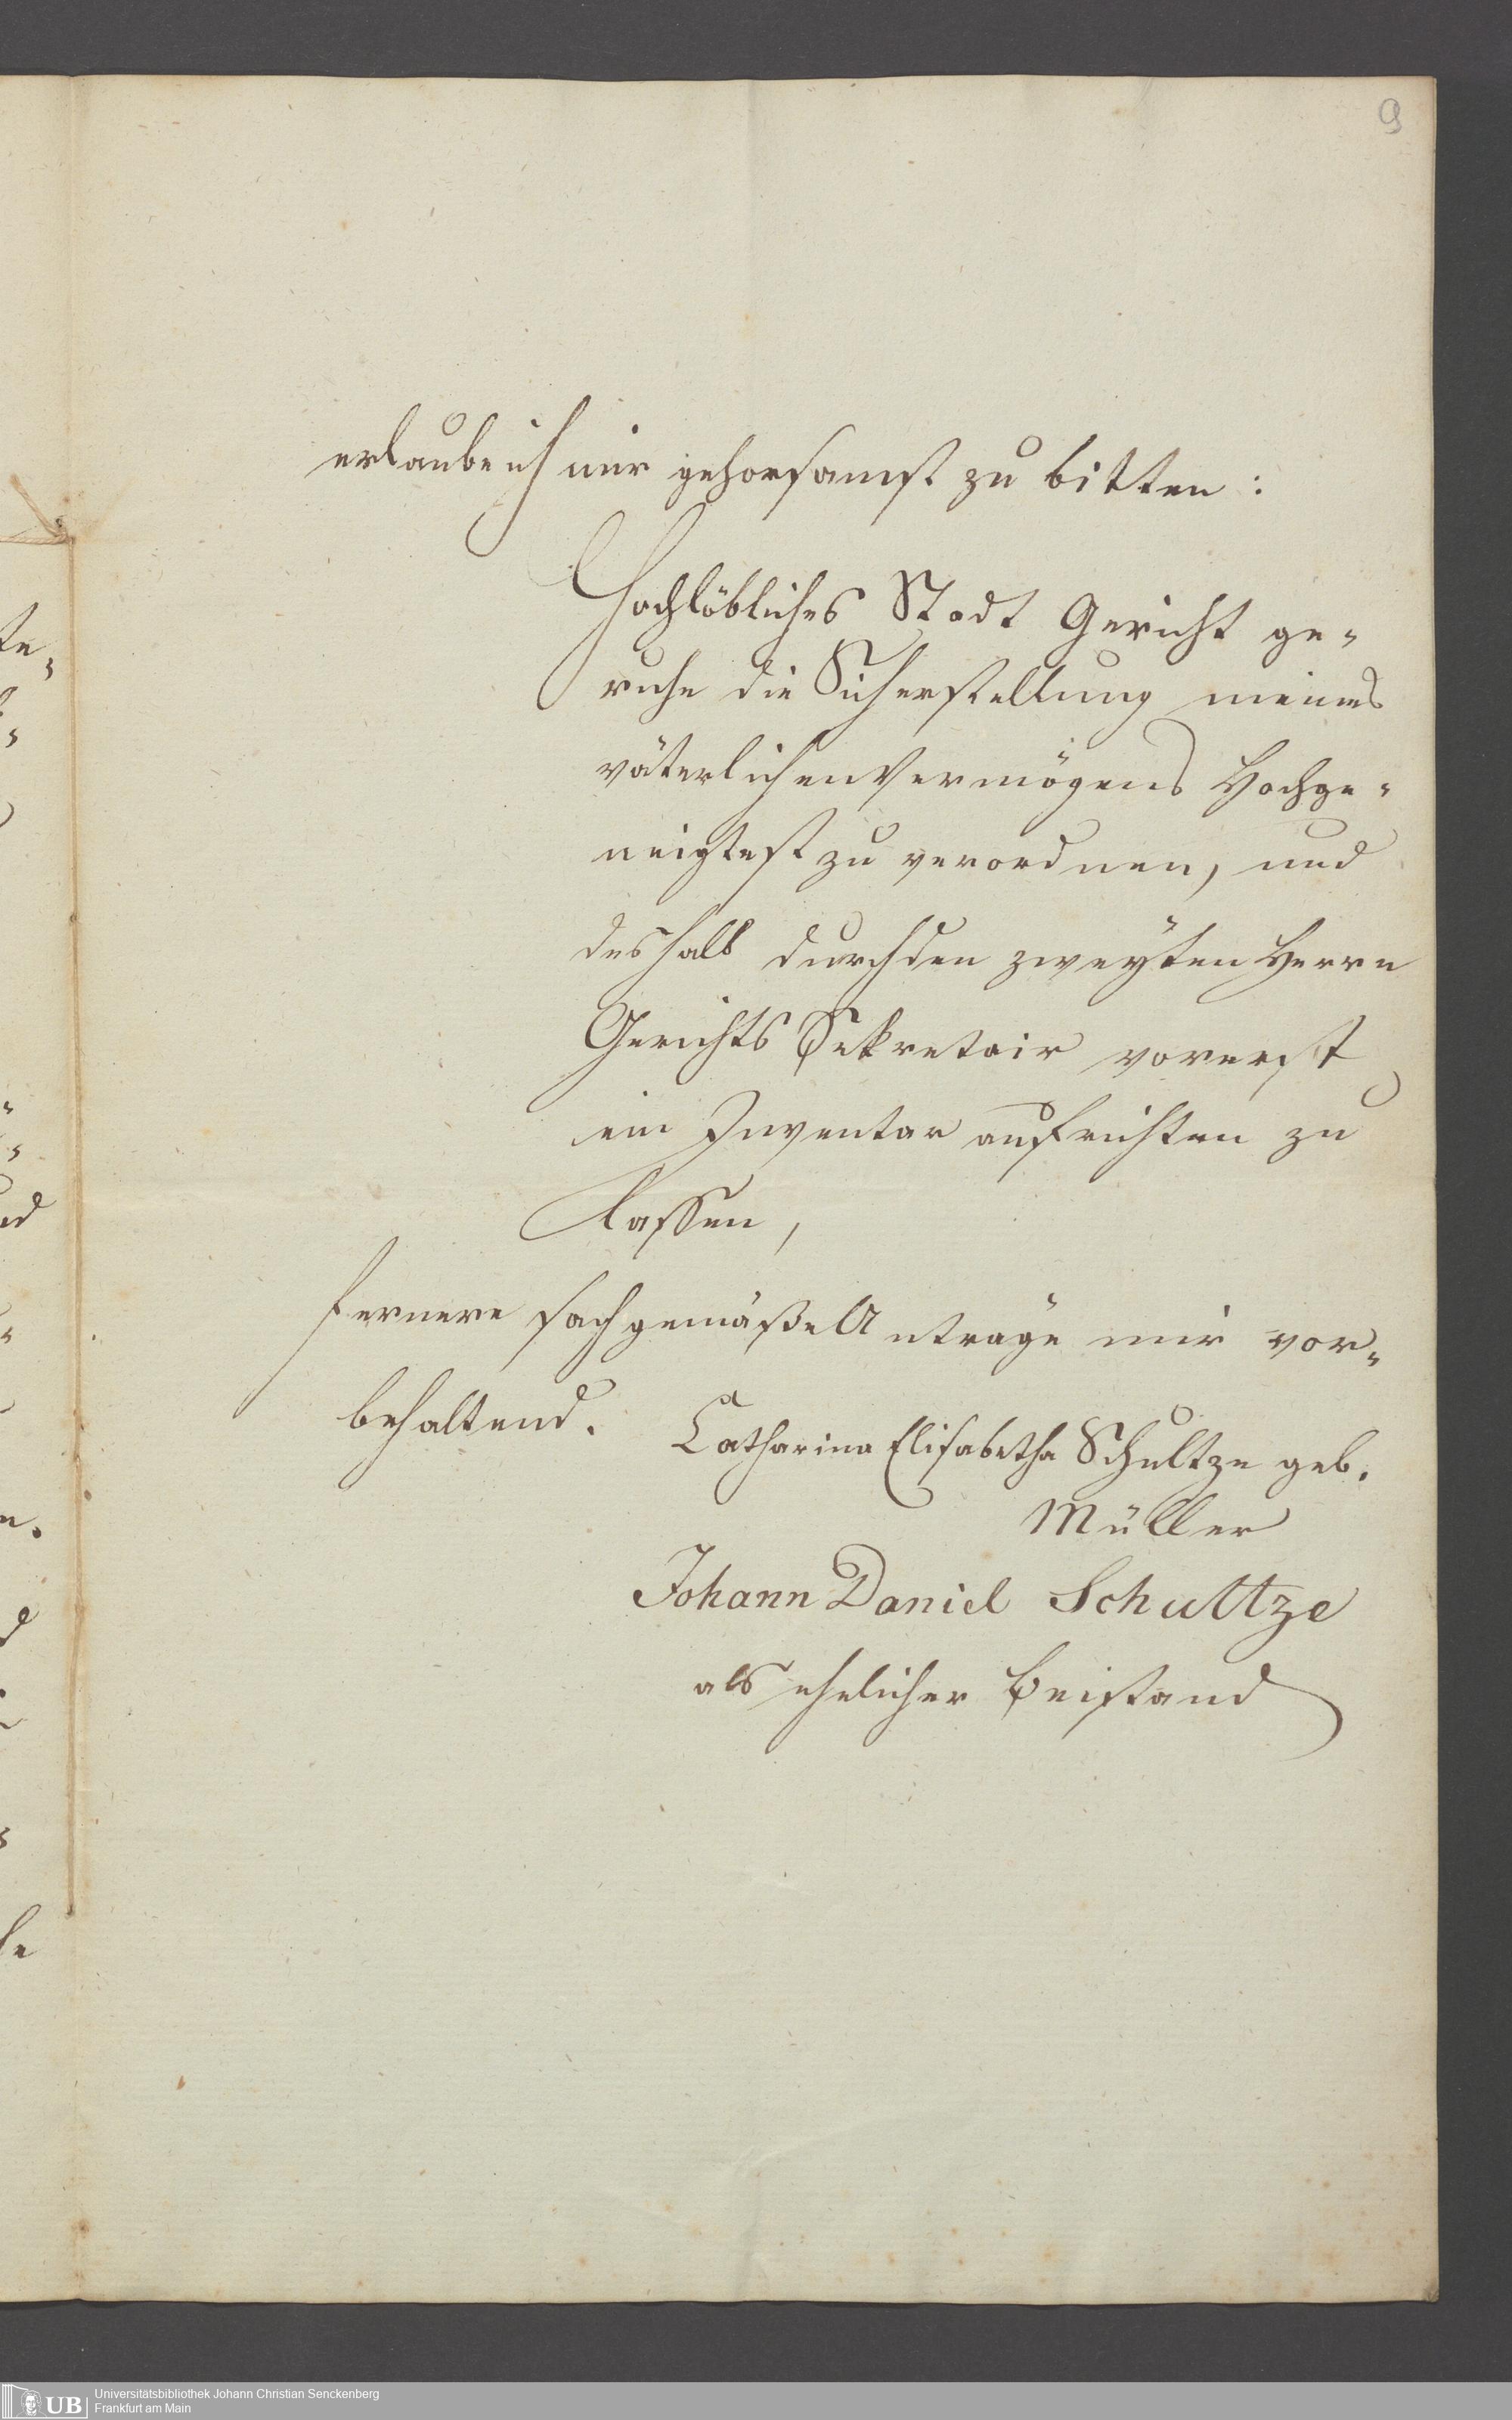 9
erlaube ich mir gehorsamst zu bitten:
Hochlöbliches Stadt Gericht ge-
ruhe die Sicherstellung meines
väterlichen Vermögens Hochge-
neigtest zu verordnen, und
deshalb durch den zweyten Herrn
Gerichts Sekretair vorerst
ein Inventar aufrichten zu
lassen,
fernere sachgemäße Anträge mir vor-
behaltend.
Catharina Elisabetha Schultze geb.
Müller
Johann Daniel Schultze
als ehelicher Beistand
UB
Universitätsbibliothek Johann Christian Senckenberg
Frankfurt am Main